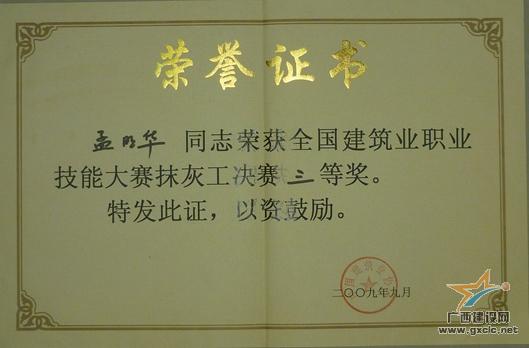 荣誉证书
孟明华 同志荣获全国建筑业职业
技能大赛抹灰工决赛三等奖。
特发此证，以资鼓励。
二〇〇九年九月
广西建设网
www.gxcic.net